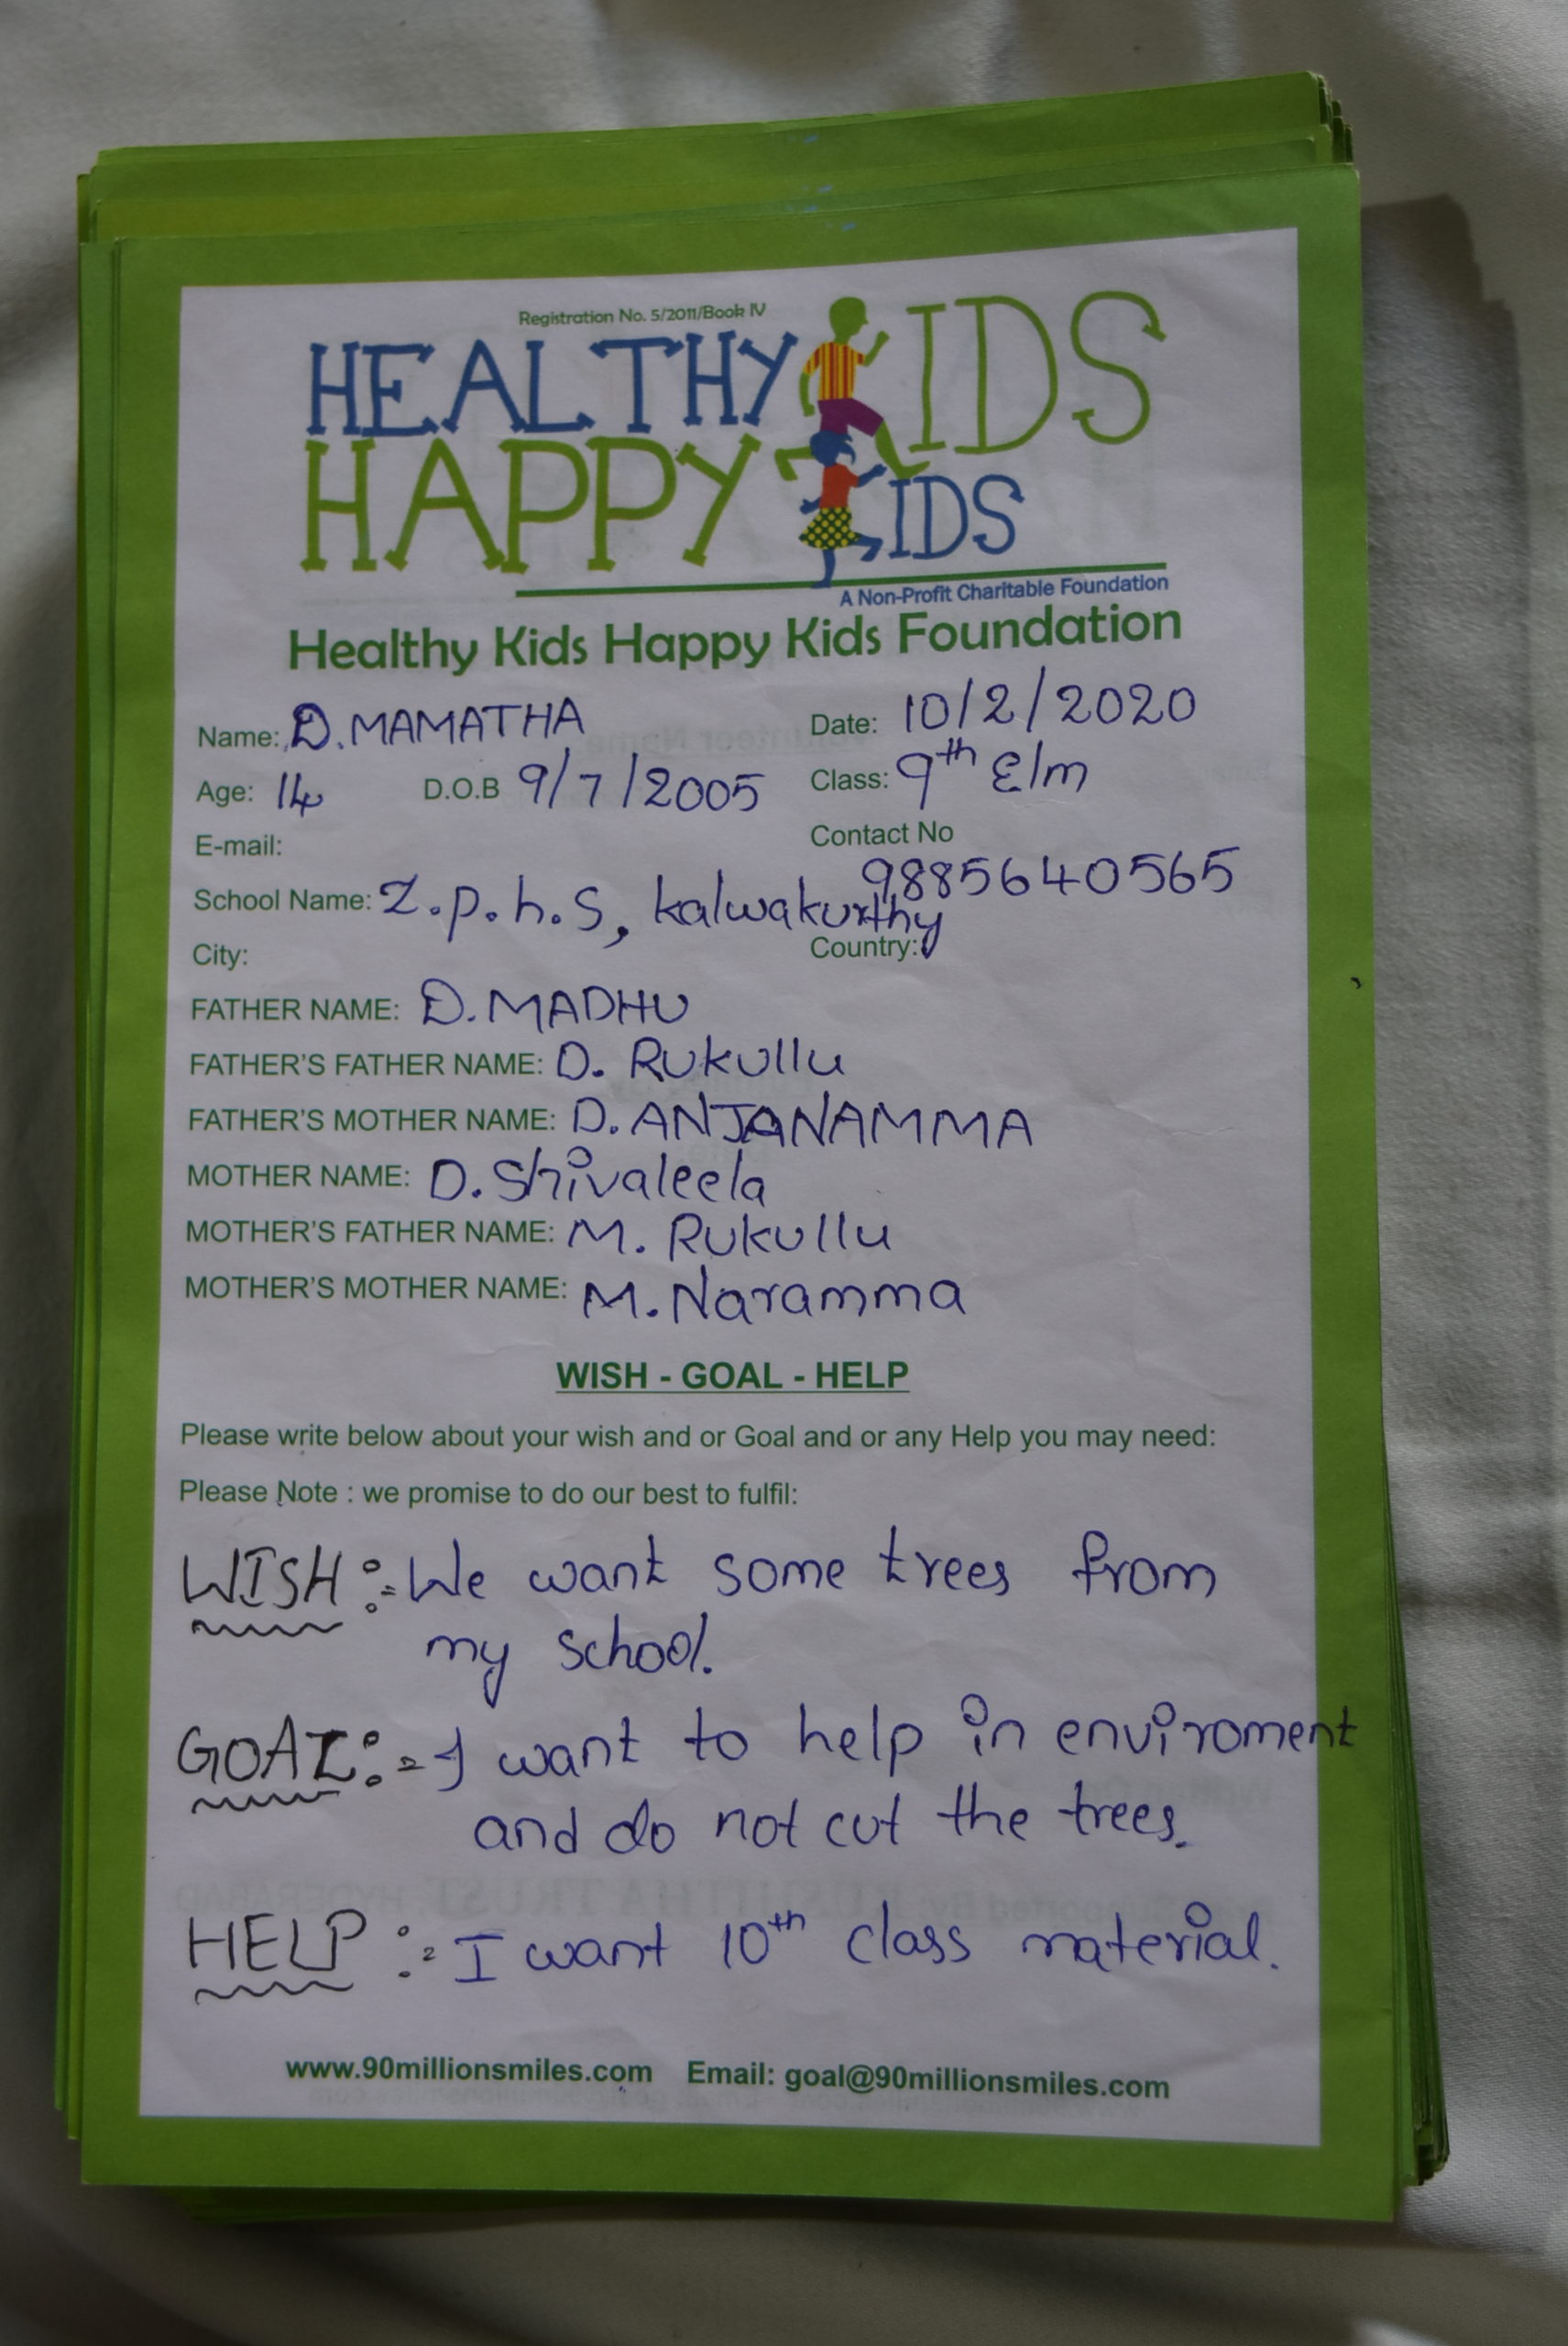 Registration No. 5/2011/Book IV
HEALTHY KIDS
HAPPY KIDS
A Non-Profit Charitable Foundation
Healthy Kids Happy Kids Foundation
Name: D. MAMATHA Date: 10/2/2020
Age: 14 D.O.B 9/7/2005 Class: 9th E/m
E-mail: Contact No 9885640565
School Name: Z.p.h.s, kalwakurthy
City: Country:
FATHER NAME: D. MADHU
FATHER'S FATHER NAME: D. Rukullu
FATHER'S MOTHER NAME: D. ANJANAMMA
MOTHER NAME: D. Shivaleela
MOTHER'S FATHER NAME: M. Rukullu
MOTHER'S MOTHER NAME: M. Naramma
WISH - GOAL - HELP
Please write below about your wish and or Goal and or any Help you may need:
Please Note : we promise to do our best to fulfil:
WISH :- We want some trees from
my school.
GOAL :- I want to help in enviroment
and do not cut the trees.
HELP :- I want 10th class material.
www.90millionsmiles.com Email: goal@90millionsmiles.com